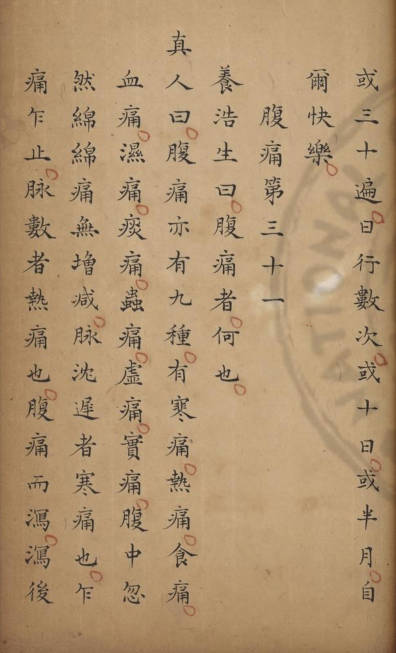 或三十遍日行數次或十日或半月自
爾快樂
腹痛第三十一
養浩生曰腹痛者何也
真人曰腹痛亦有九種有寒痛熱痛食痛
血痛濕痛痰痛蟲痛虛痛實痛腹中忽
然綿綿痛無增減脉沈遲者寒痛也乍
痛乍止脉數者熱痛也腹痛而瀉瀉後